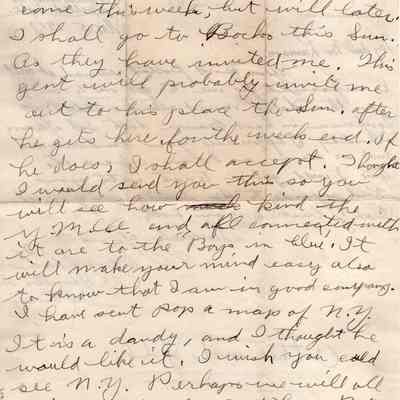 come this week, but will later.
I shall go to Bocks this Sun.
As they have invited me. This
gent will probably invite me
out to his place the Sun. after
he gets here for the week end. If
he does, I shall accept. Thought
I would send you this so you
will see how much kind the
Y.M.C.A. and all connected with
it are to the Boys in blue. It
will make your mind easy also
to know that I am in good company.
I have sent Pop a map of N.Y.
It is a dandy, and I thought he
would like it. I wish you could
see N.Y. Perhaps we will all